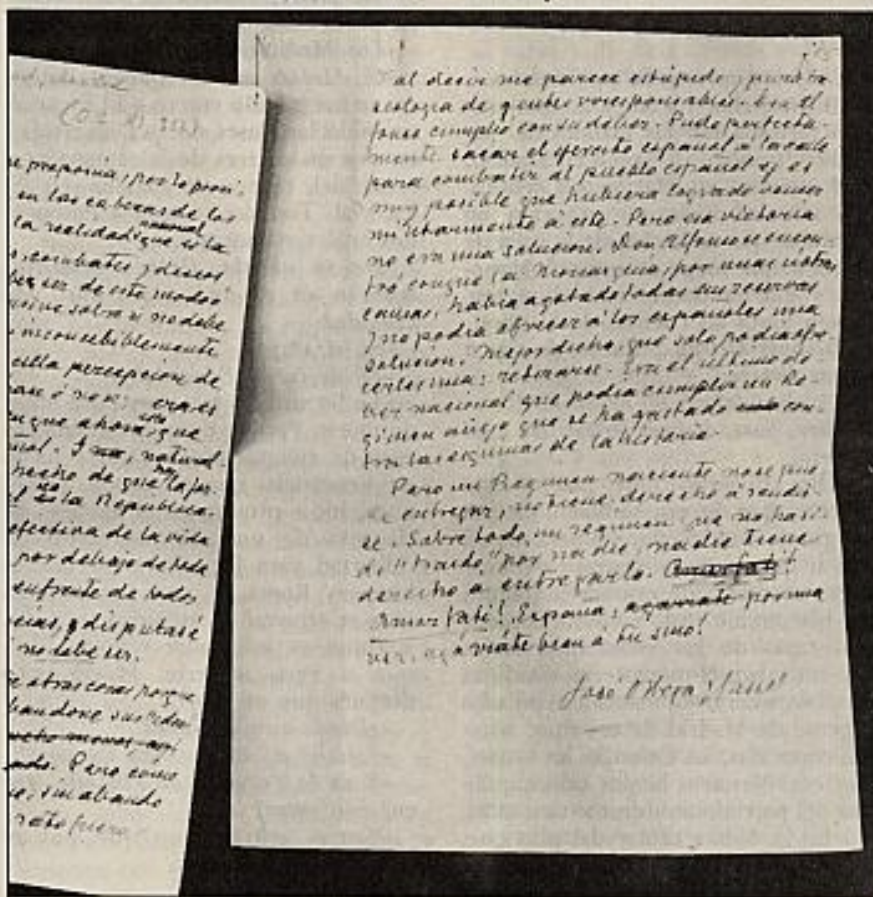 se proponía, por lo pron-
en las cabezas de los
la realidad nacional que es la
s, combates y deseos
ber ser de este modo o
sobre si no debe
inconcebiblemente
cilla percepción de
o no es
que ahora, sólo que
ñal. I natural-
hecho de que no la for-
la República.
efectiva de la vida
por debajo de toda
enfrente de todos
cias, y disputas é
no debe ser.
e otras cosas porque
bandone sus
mucho menos aquí
ado. Pero como
e, sin abando
rato fuera
al decir me parece estúpido y pura fra
seología de gentes irresponsables. Don Al
fonso cumplió con su deber. Pudo perfecta-
mente sacar el ejército español á la calle
para combatir al pueblo español y es
muy posible que hubiera logrado vencer
militarmente á éste. Pero esa victoria
no era una solución. Don Alfonso se encon-
tró conque la Monarquía, por unas ú otras
causas, había agotado todas sus reservas
y no podía ofrecer á los españoles una
solución. Mejor dicho, que solo podía ofre-
cerles una: retirarse. Era el último de
ber nacional que podía cumplir un Ré
gimen añejo que se ha gastado con-
tra las esquinas de la historia.
Pero un Régimen naciente no se pue
de entregar, no tiene derecho á rendir
se. Sobre todo, un régimen que no ha si
do "traído" por nadie, nadie tiene
derecho a entregarlo. Amor fati!
Amor fati! España, agarrate por una
vez, agárrate bien á tu sino!
José Ortega y Gasset